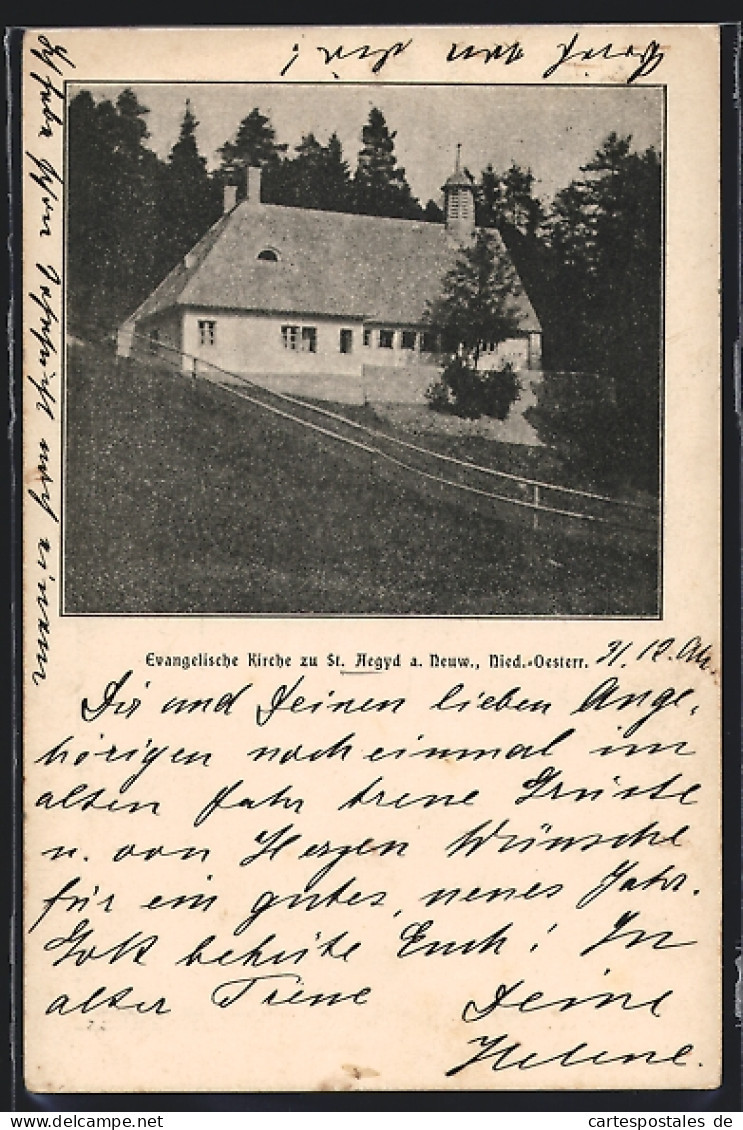 Evangelische Kirche zu St. Aegyd a. Neuw., Nied.-Oesterr. 31. 12.
Dir und Deinen lieben Ange-
hörigen noch einmal im
alten Jahr treue Grüsse
u. von Herzen Wünsche
für ein gutes, neues Jahr.
Gott behüte Euch! In
alter Treue Deine
Helene.
cartespostales de